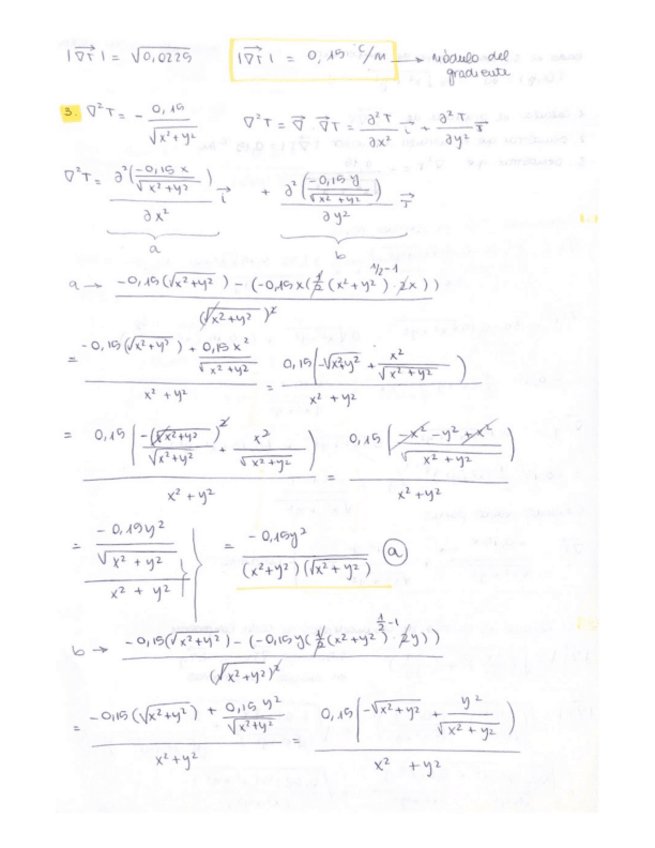 |∇T| = √0,0225   |∇T| = 0,15 °C/m → módulo del gradiente
3. ∇²T = - 0,15 / √(x²+y²)   ∇²T = ∇ · ∇T = ∂²T/∂x² i + ∂²T/∂y² j
∇²T = ∂²(-0,15 x / √(x²+y²)) / ∂x² i + ∂²(-0,15 y / √(x²+y²)) / ∂y² j
a   b
a → (-0,15(√(x²+y²)) - (-0,15x(1/2 (x²+y²)^(1/2-1) · 2x))) / (√(x²+y²))²
= (-0,15(√(x²+y²)) + 0,15x² / √(x²+y²)) / (x²+y²) = 0,15(-√(x²+y²) + x² / √(x²+y²)) / (x²+y²)
= 0,15(-(√(x²+y²))² / √(x²+y²) + x² / √(x²+y²)) / (x²+y²) = 0,15((-x² - y² + x²) / √(x²+y²)) / (x²+y²)
= (-0,15y² / √(x²+y²)) / (x²+y²) = -0,15y² / ((x²+y²)(√(x²+y²))) a
b → (-0,15(√(x²+y²)) - (-0,15y(1/2 (x²+y²)^(1/2-1) · 2y))) / (√(x²+y²))²
= (-0,15(√(x²+y²)) + 0,15y² / √(x²+y²)) / (x²+y²) = 0,15(-√(x²+y²) + y² / √(x²+y²)) / (x²+y²)